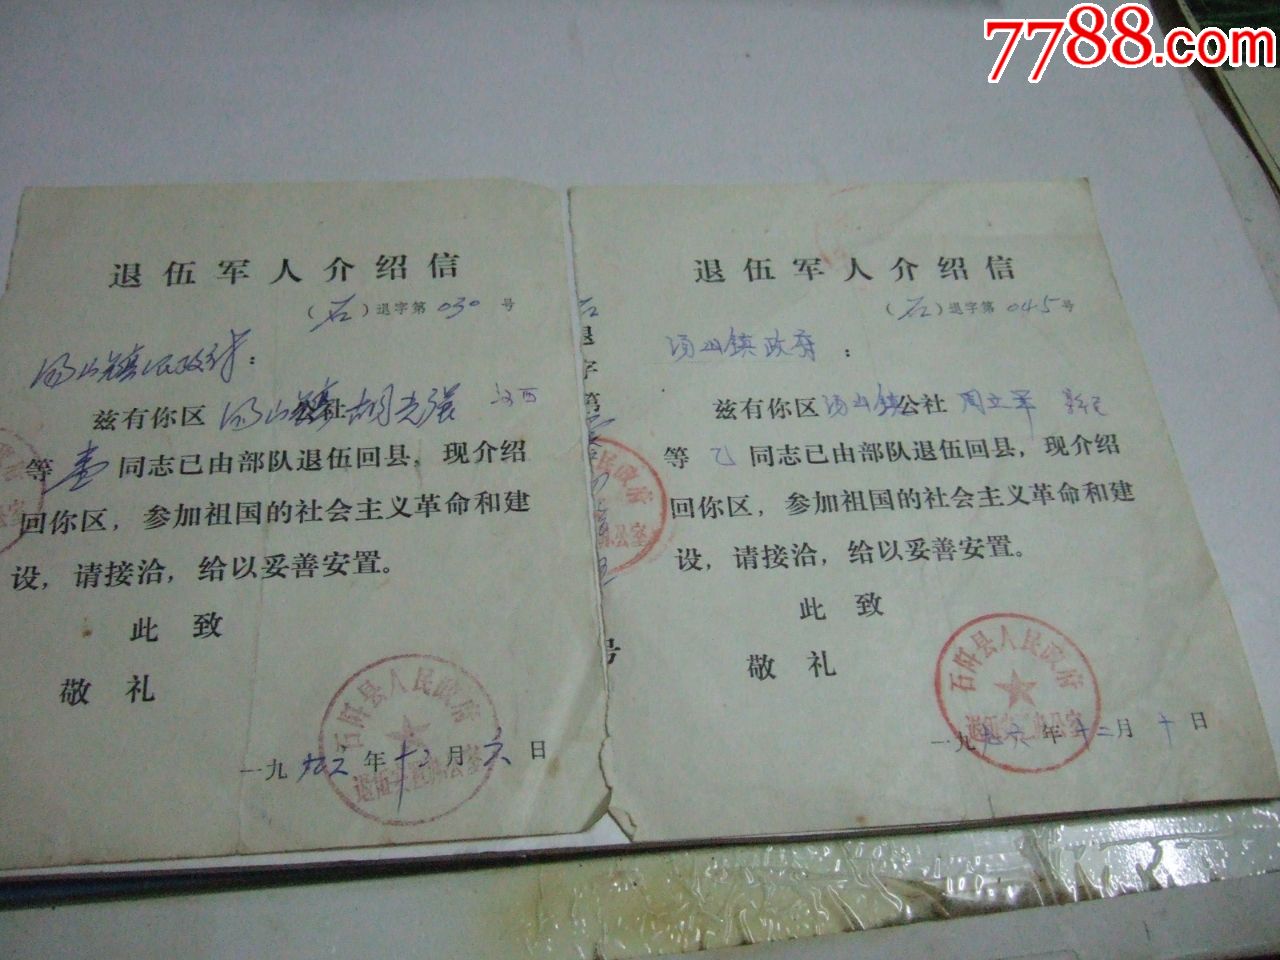 7788.com
退伍军人介绍信
（石）退字第030号
汤山镇民政办：
兹有你区汤山镇公社胡光强
等壹同志已由部队退伍回县，现介绍
回你区，参加祖国的社会主义革命和建
设，请接洽，给以妥善安置。
此致
敬礼
石阡县人民政府
退伍安置办公室
一九九六年十二月六日
石退字第
号
民政府
办公室
退伍军人介绍信
（石）退字第045号
汤山镇政府：
兹有你区汤山镇公社周立军
等乙同志已由部队退伍回县，现介绍
回你区，参加祖国的社会主义革命和建
设，请接洽，给以妥善安置。
此致
敬礼
石阡县人民政府
退伍安置办公室
一九九六年十二月十日